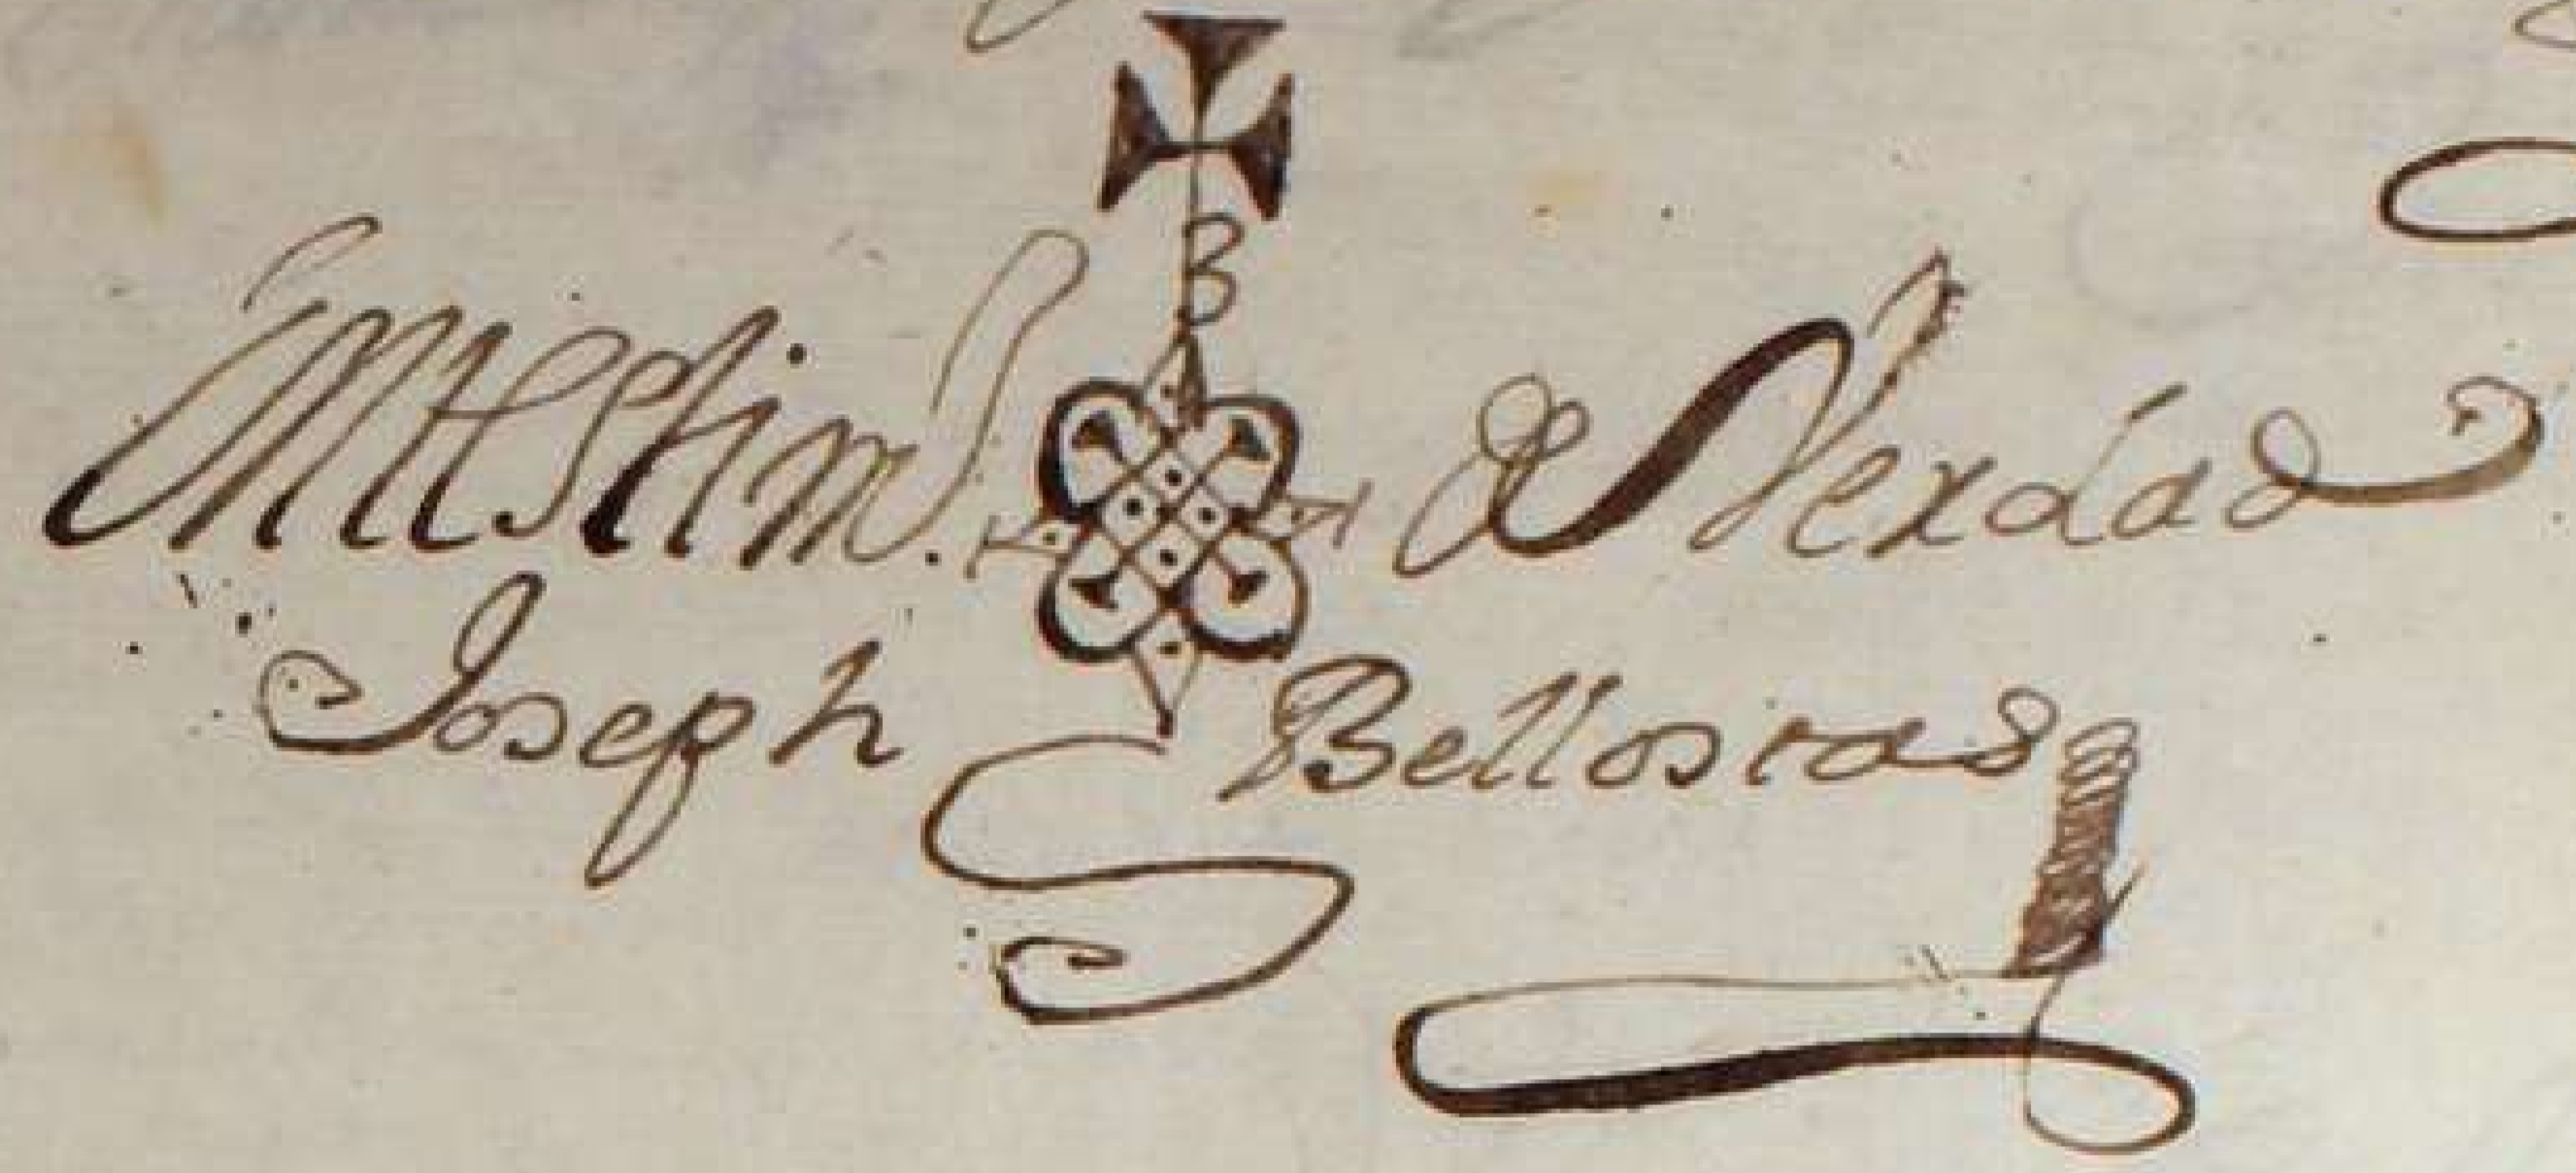 B
En testim.º de Verdad
Joseph Bellostas